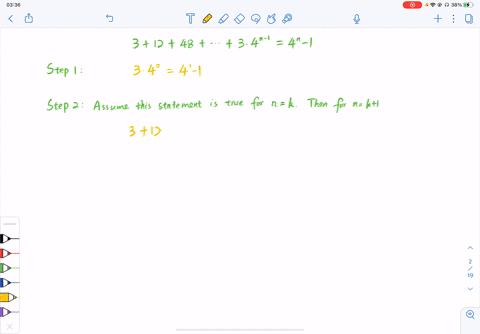 03:36
38%
3 + 12 + 48 + ⋯ + 3·4ⁿ⁻¹ = 4ⁿ - 1
Step 1: 3·4⁰ = 4¹ - 1
Step 2: Assume this statement is true for n=k. Then for n=k+1
3 + 12
2
/
19